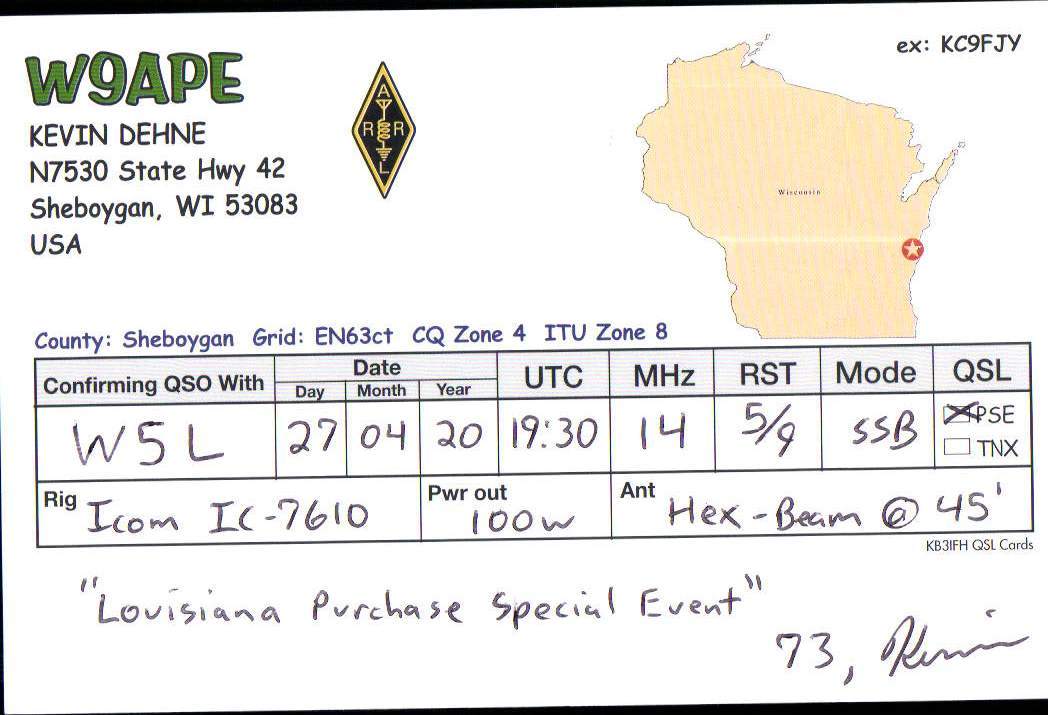 W9APE
ex: KC9FJY
KEVIN DEHNE
N7530 State Hwy 42
Sheboygan, WI 53083
USA
A
R R
L
Wisconsin
County: Sheboygan Grid: EN63ct CQ Zone 4 ITU Zone 8
Confirming QSO With Date UTC MHz RST Mode QSL
Day Month Year
W5L 27 04 20 19:30 14 5/9 SSB PSE
TNX
Rig Icom IC-7610 Pwr out 100w Ant Hex-Beam @ 45'
KB3IFH QSL Cards
"Louisiana Purchase Special Event"
73, Kevin